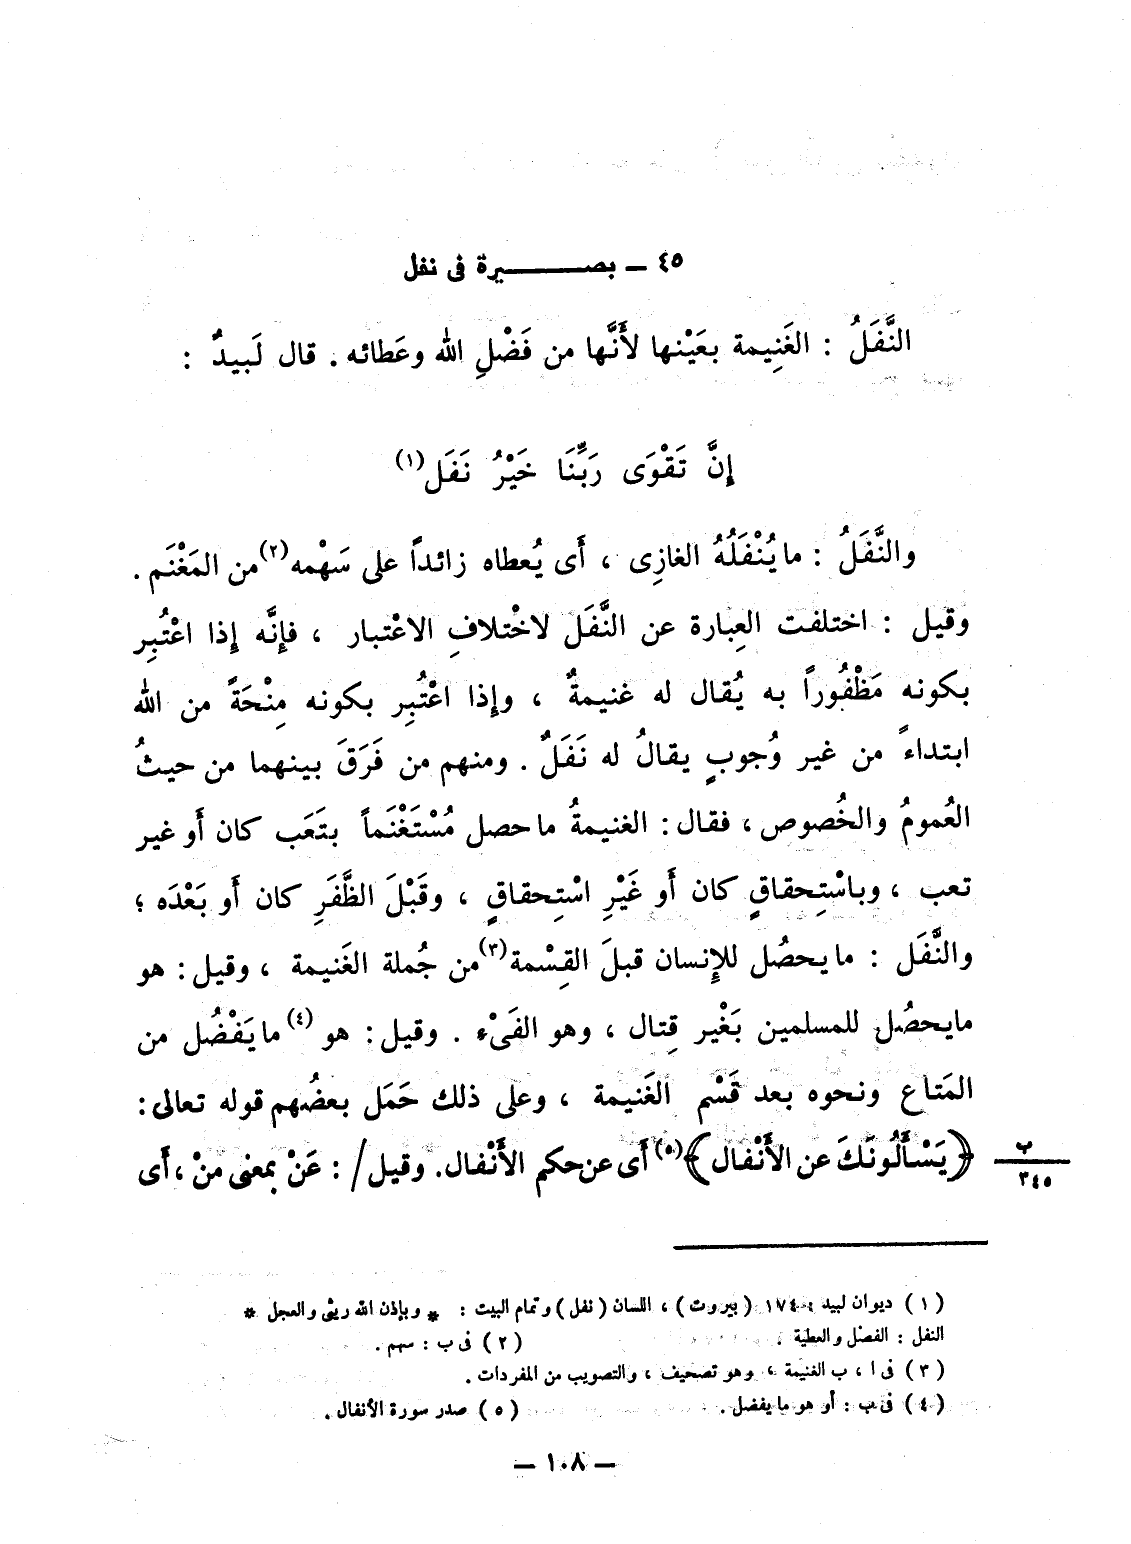 ٤٥ ـ بصـــــــيرة فى نفل
النَّفَلُ : الغَنِيمة بعَيْنها لأَنَّها من فَضْلِ الله وعَطائه . قال لَبيدٌ :
إِنَّ تَقْوَى رَبِّنَا خَيْرُ نَفَل(١)
والنَّفَلُ : ما يُنْفَلُهُ الغازِى ، أَى يُعطاه زائداً على سَهْمه(٢) من المَغْنَم .
وقيل : اختلفت العِبارة عن النَّفَل لاخْتلافِ الاعْتبار ، فإِنَّه إِذا اعْتُبِر
بكونه مَظْفُوراً به يُقال له غنيمةٌ ، وإِذا اعْتُبِر بكونه مِنْحَةً من الله
ابتداءً من غير وُجوبٍ يقالُ له نَفَلٌ . ومنهم من فَرَقَ بينهما من حيثُ
العُمومُ والخُصوص ، فقال : الغنيمةُ ما حصل مُسْتَغْنَماً بتَعَب كان أَو غير
تعب ، وباسْتِحقاقٍ كان أَو غَيْرِ اسْتِحقاقٍ ، وقَبْلَ الظَّفَرِ كان أَو بَعْدَه ؛
والنَّفَل : ما يحصُل للإِنسان قبلَ القِسْمة(٣) من جُملة الغَنيمة ، وقيل : هو
ما يحصُل للمسلمين بَغْير قِتال ، وهو الفَىْء . وقيل : هو (٤) ما يَفْضُل من
المَتاع ونحوه بعد قَسْم الغَنيمة ، وعلى ذلك حَمَل بعضُهم قوله تعالى :
﴿يَسْأَلُونَكَ عن الأَنْفال﴾(٥) أَى عن حكم الأَنْفال. وقيل/ : عَنْ بمعنى منْ ، أَى
ب
٣٤٥
(١) ديوان لبيد : ١٧٤ (بيروت) ، اللسان (نفل) وتمام البيت : * وبإذن الله ريثى والعجل *
النفل : الفضل والعطية .
(٢) فى ب : سهم .
(٣) فى ا ، ب الغنيمة ، وهو تصحيف ، والتصويب من المفردات .
(٤) فى ب : أو هو ما يفضل .
(٥) صدر سورة الأنفال .
ـ ١٠٨ ـ